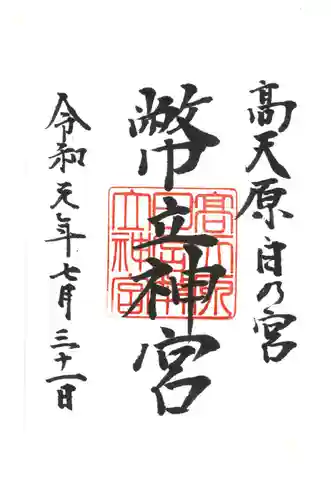 高天原日の宮
幣立神宮
令和元年七月三十一日